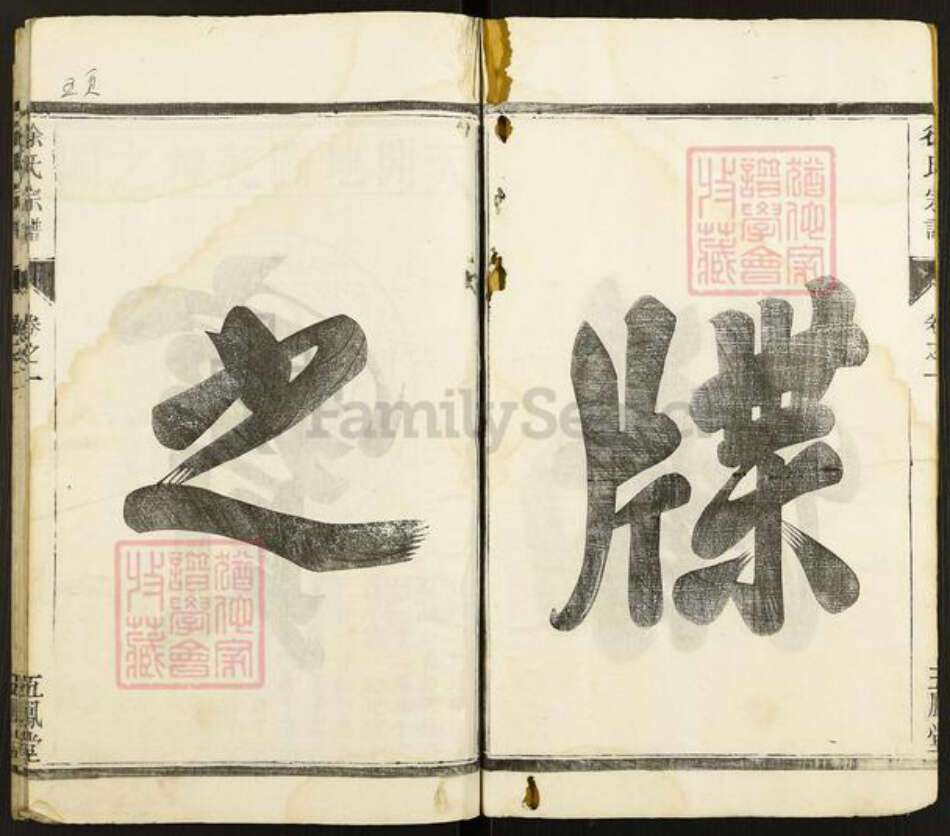 牒
之
徐氏宗譜
卷之一
五鳳堂
徐氏宗譜
卷之一
五鳳堂
五頁
猶他家
譜學會
收藏
猶他家
譜學會
收藏
FamilySearch